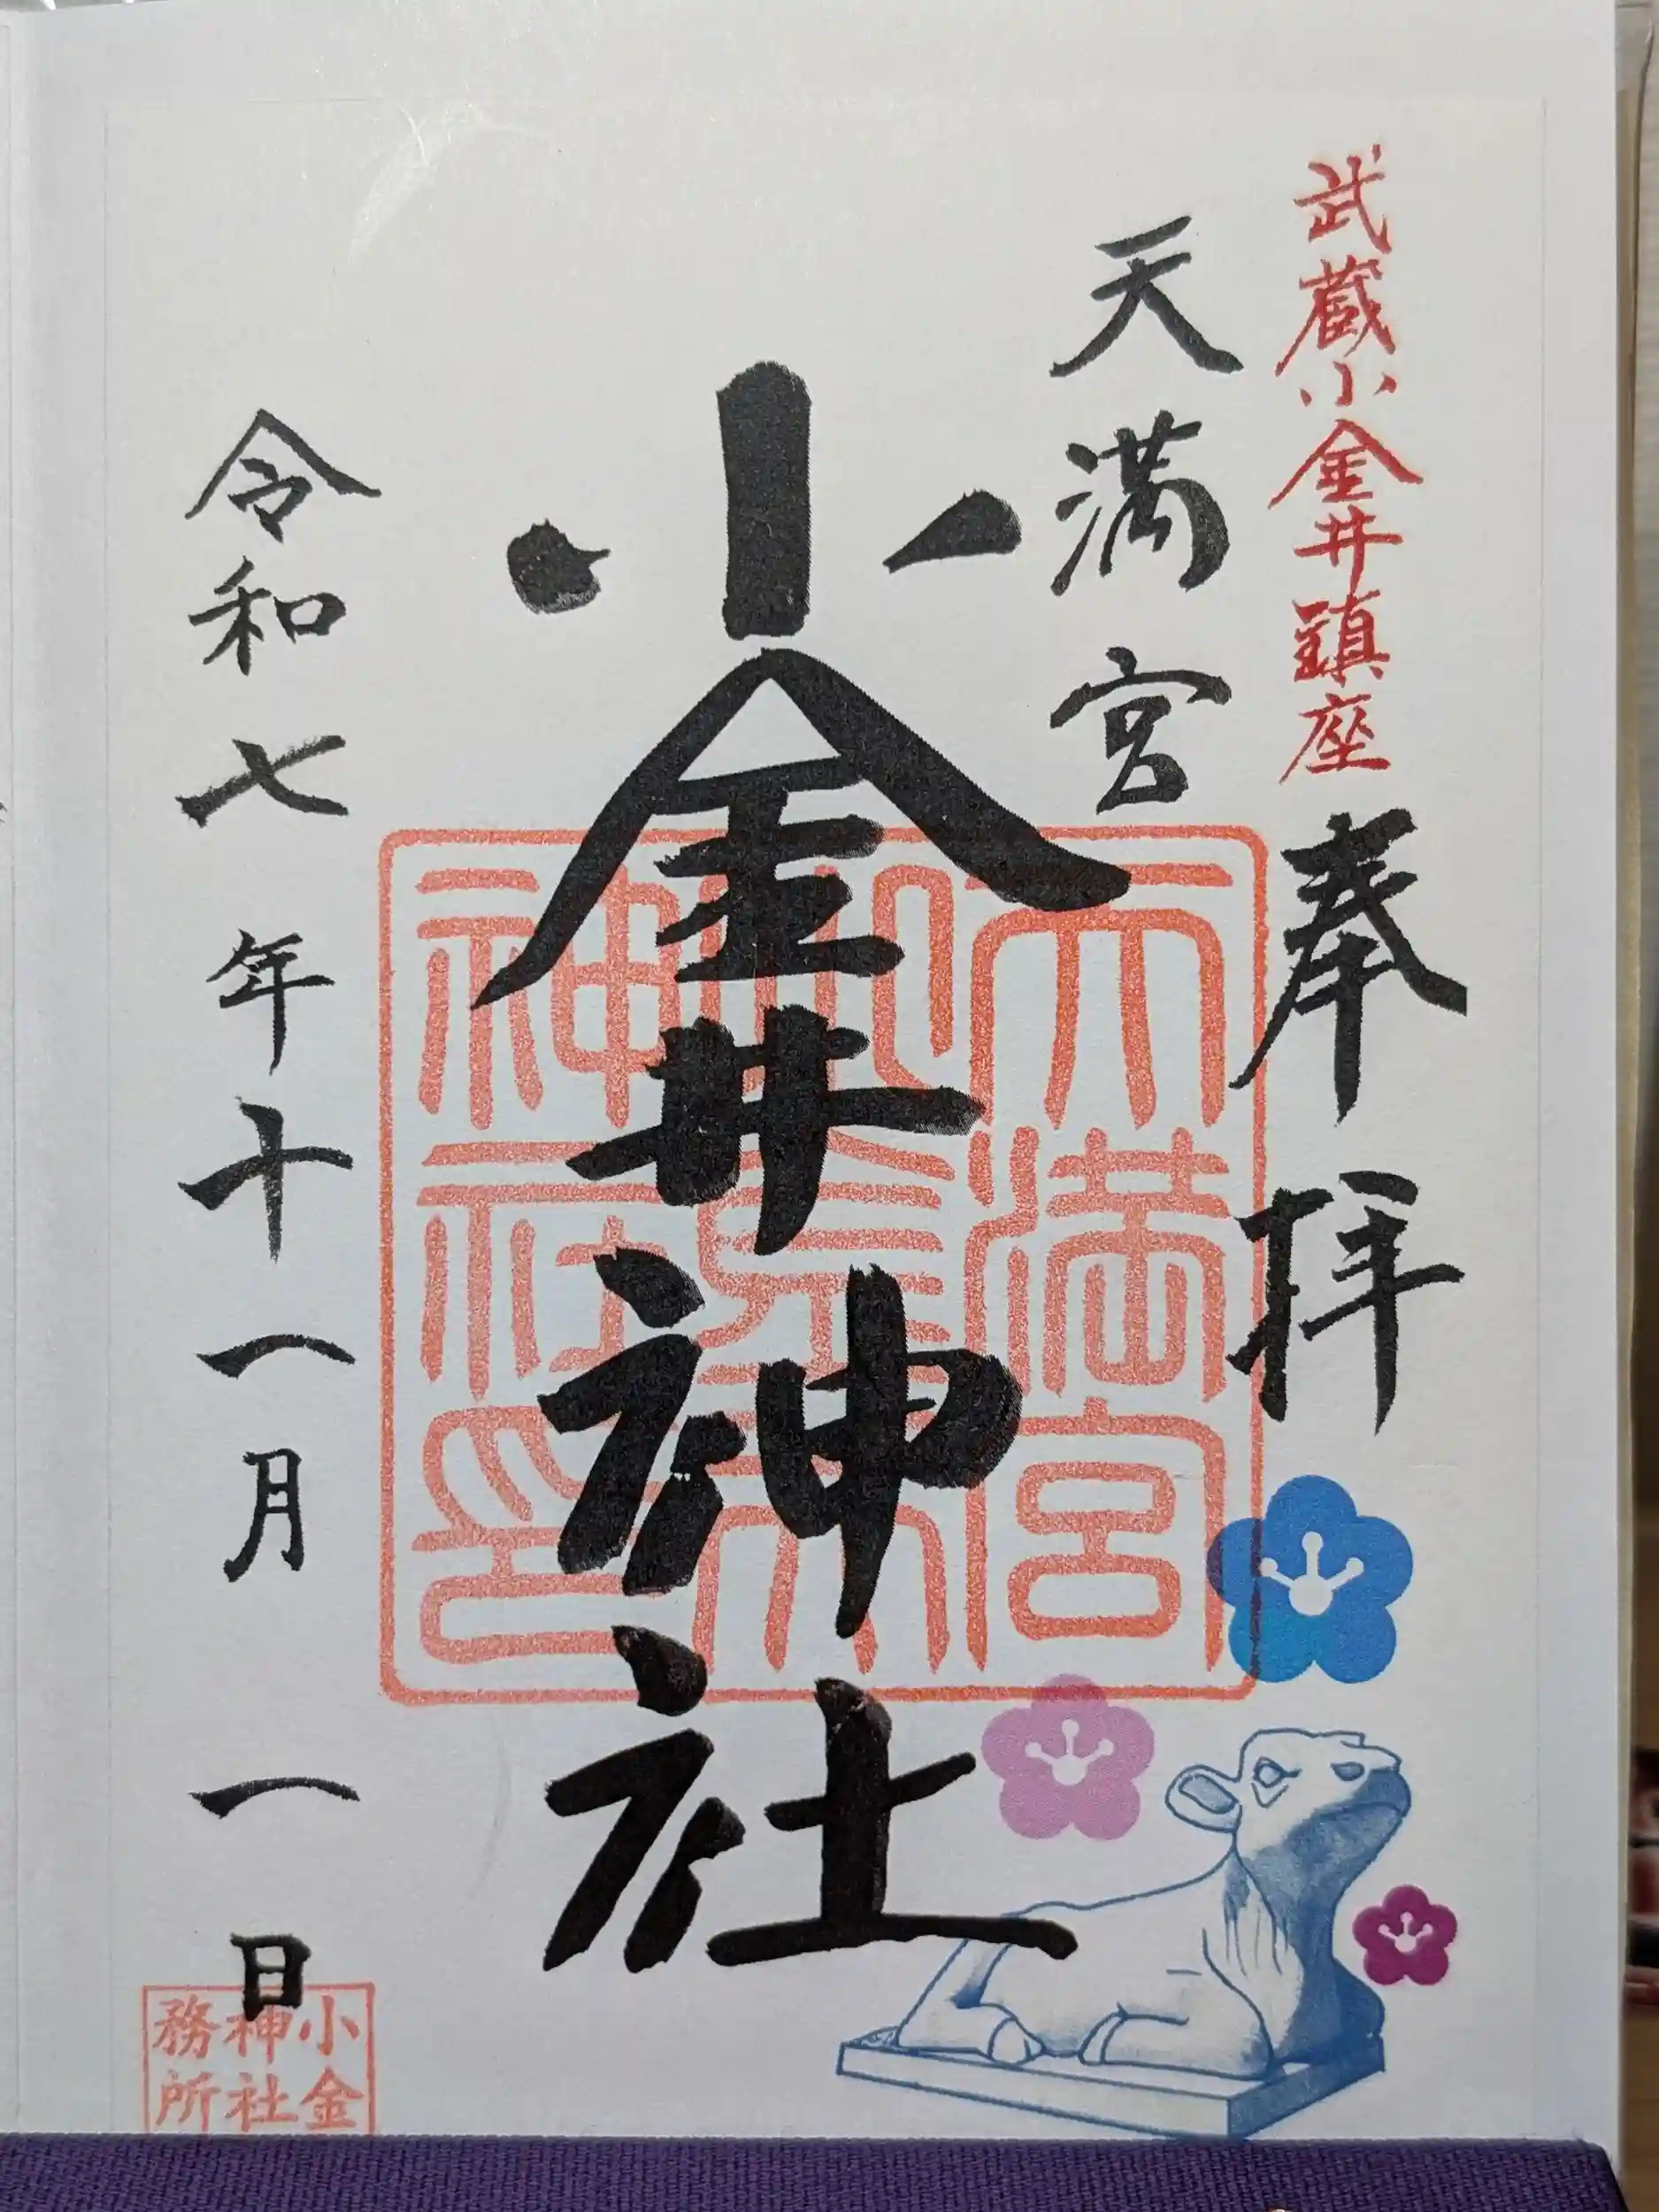 武蔵小金井鎮座
奉拝
天満宮
小金井神社
令和七年十一月一日
天満宮
神社印
小金
神社
務所